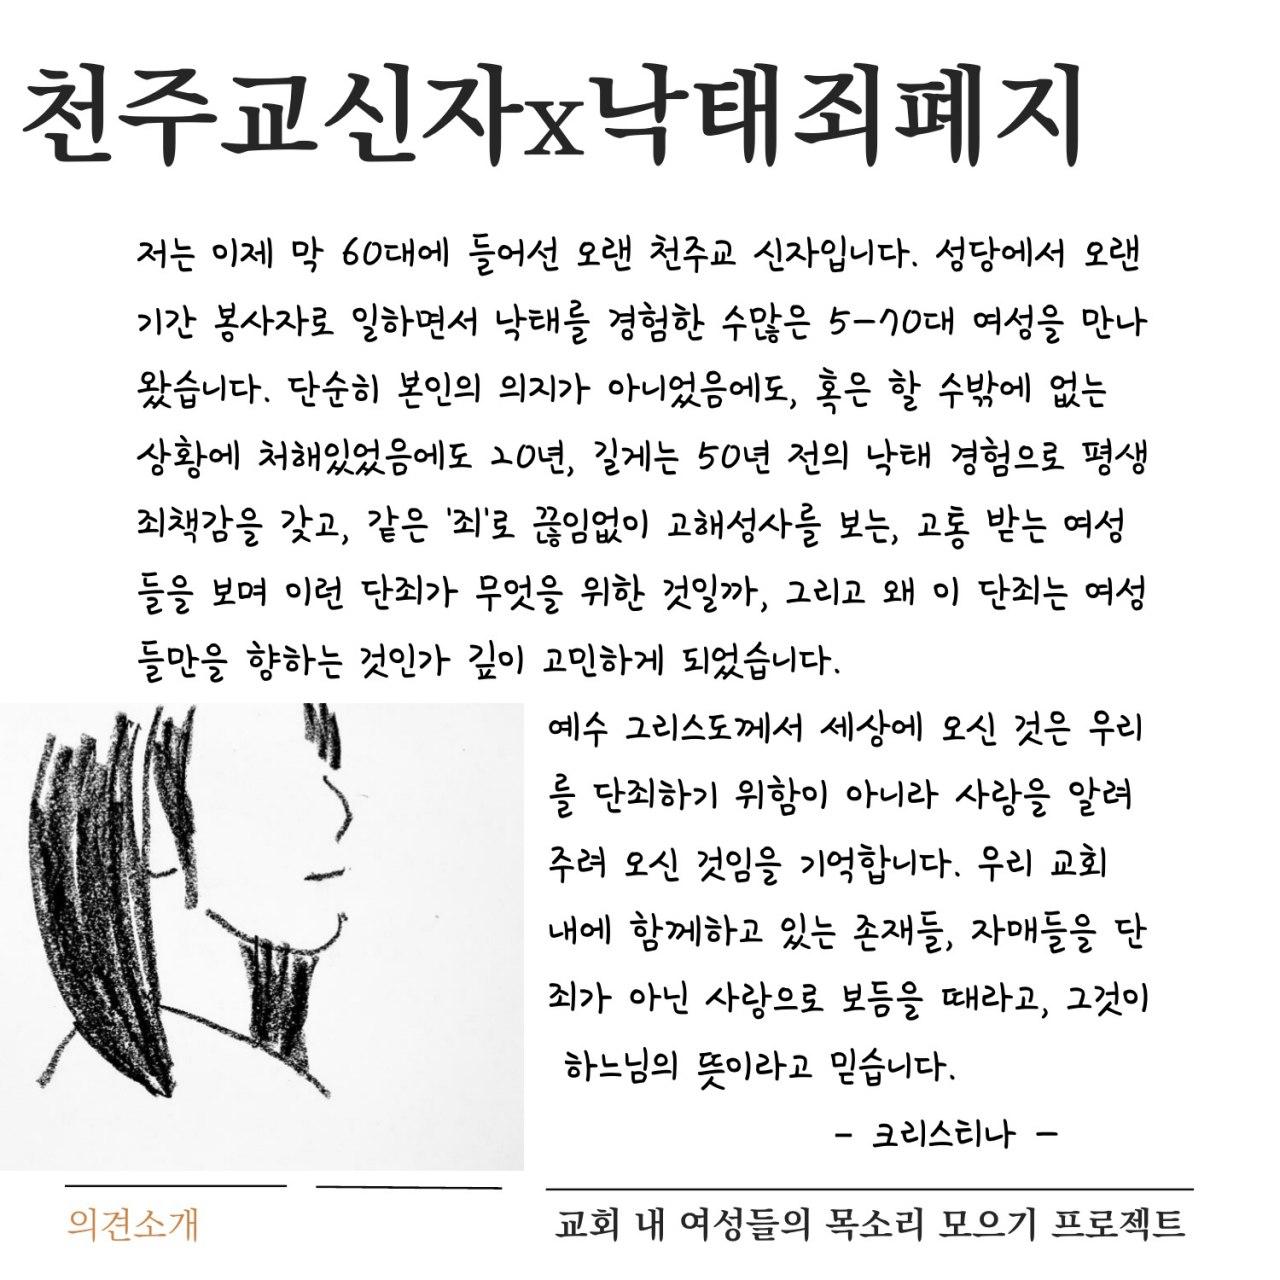 천주교신자x낙태죄폐지
저는 이제 막 60대에 들어선 오랜 천주교 신자입니다. 성당에서 오랜
기간 봉사자로 일하면서 낙태를 경험한 수많은 5-70대 여성을 만나
왔습니다. 단순히 본인의 의지가 아니었음에도, 혹은 할 수밖에 없는
상황에 처해있었음에도 20년, 길게는 50년 전의 낙태 경험으로 평생
죄책감을 갖고, 같은 '죄'로 끊임없이 고해성사를 보는, 고통 받는 여성
들을 보며 이런 단죄가 무엇을 위한 것일까, 그리고 왜 이 단죄는 여성
들만을 향하는 것인가 깊이 고민하게 되었습니다.
예수 그리스도께서 세상에 오신 것은 우리
를 단죄하기 위함이 아니라 사랑을 알려
주려 오신 것임을 기억합니다. 우리 교회
내에 함께하고 있는 존재들, 자매들을 단
죄가 아닌 사랑으로 보듬을 때라고, 그것이
하느님의 뜻이라고 믿습니다.
- 크리스티나 -
의견소개
교회 내 여성들의 목소리 모으기 프로젝트